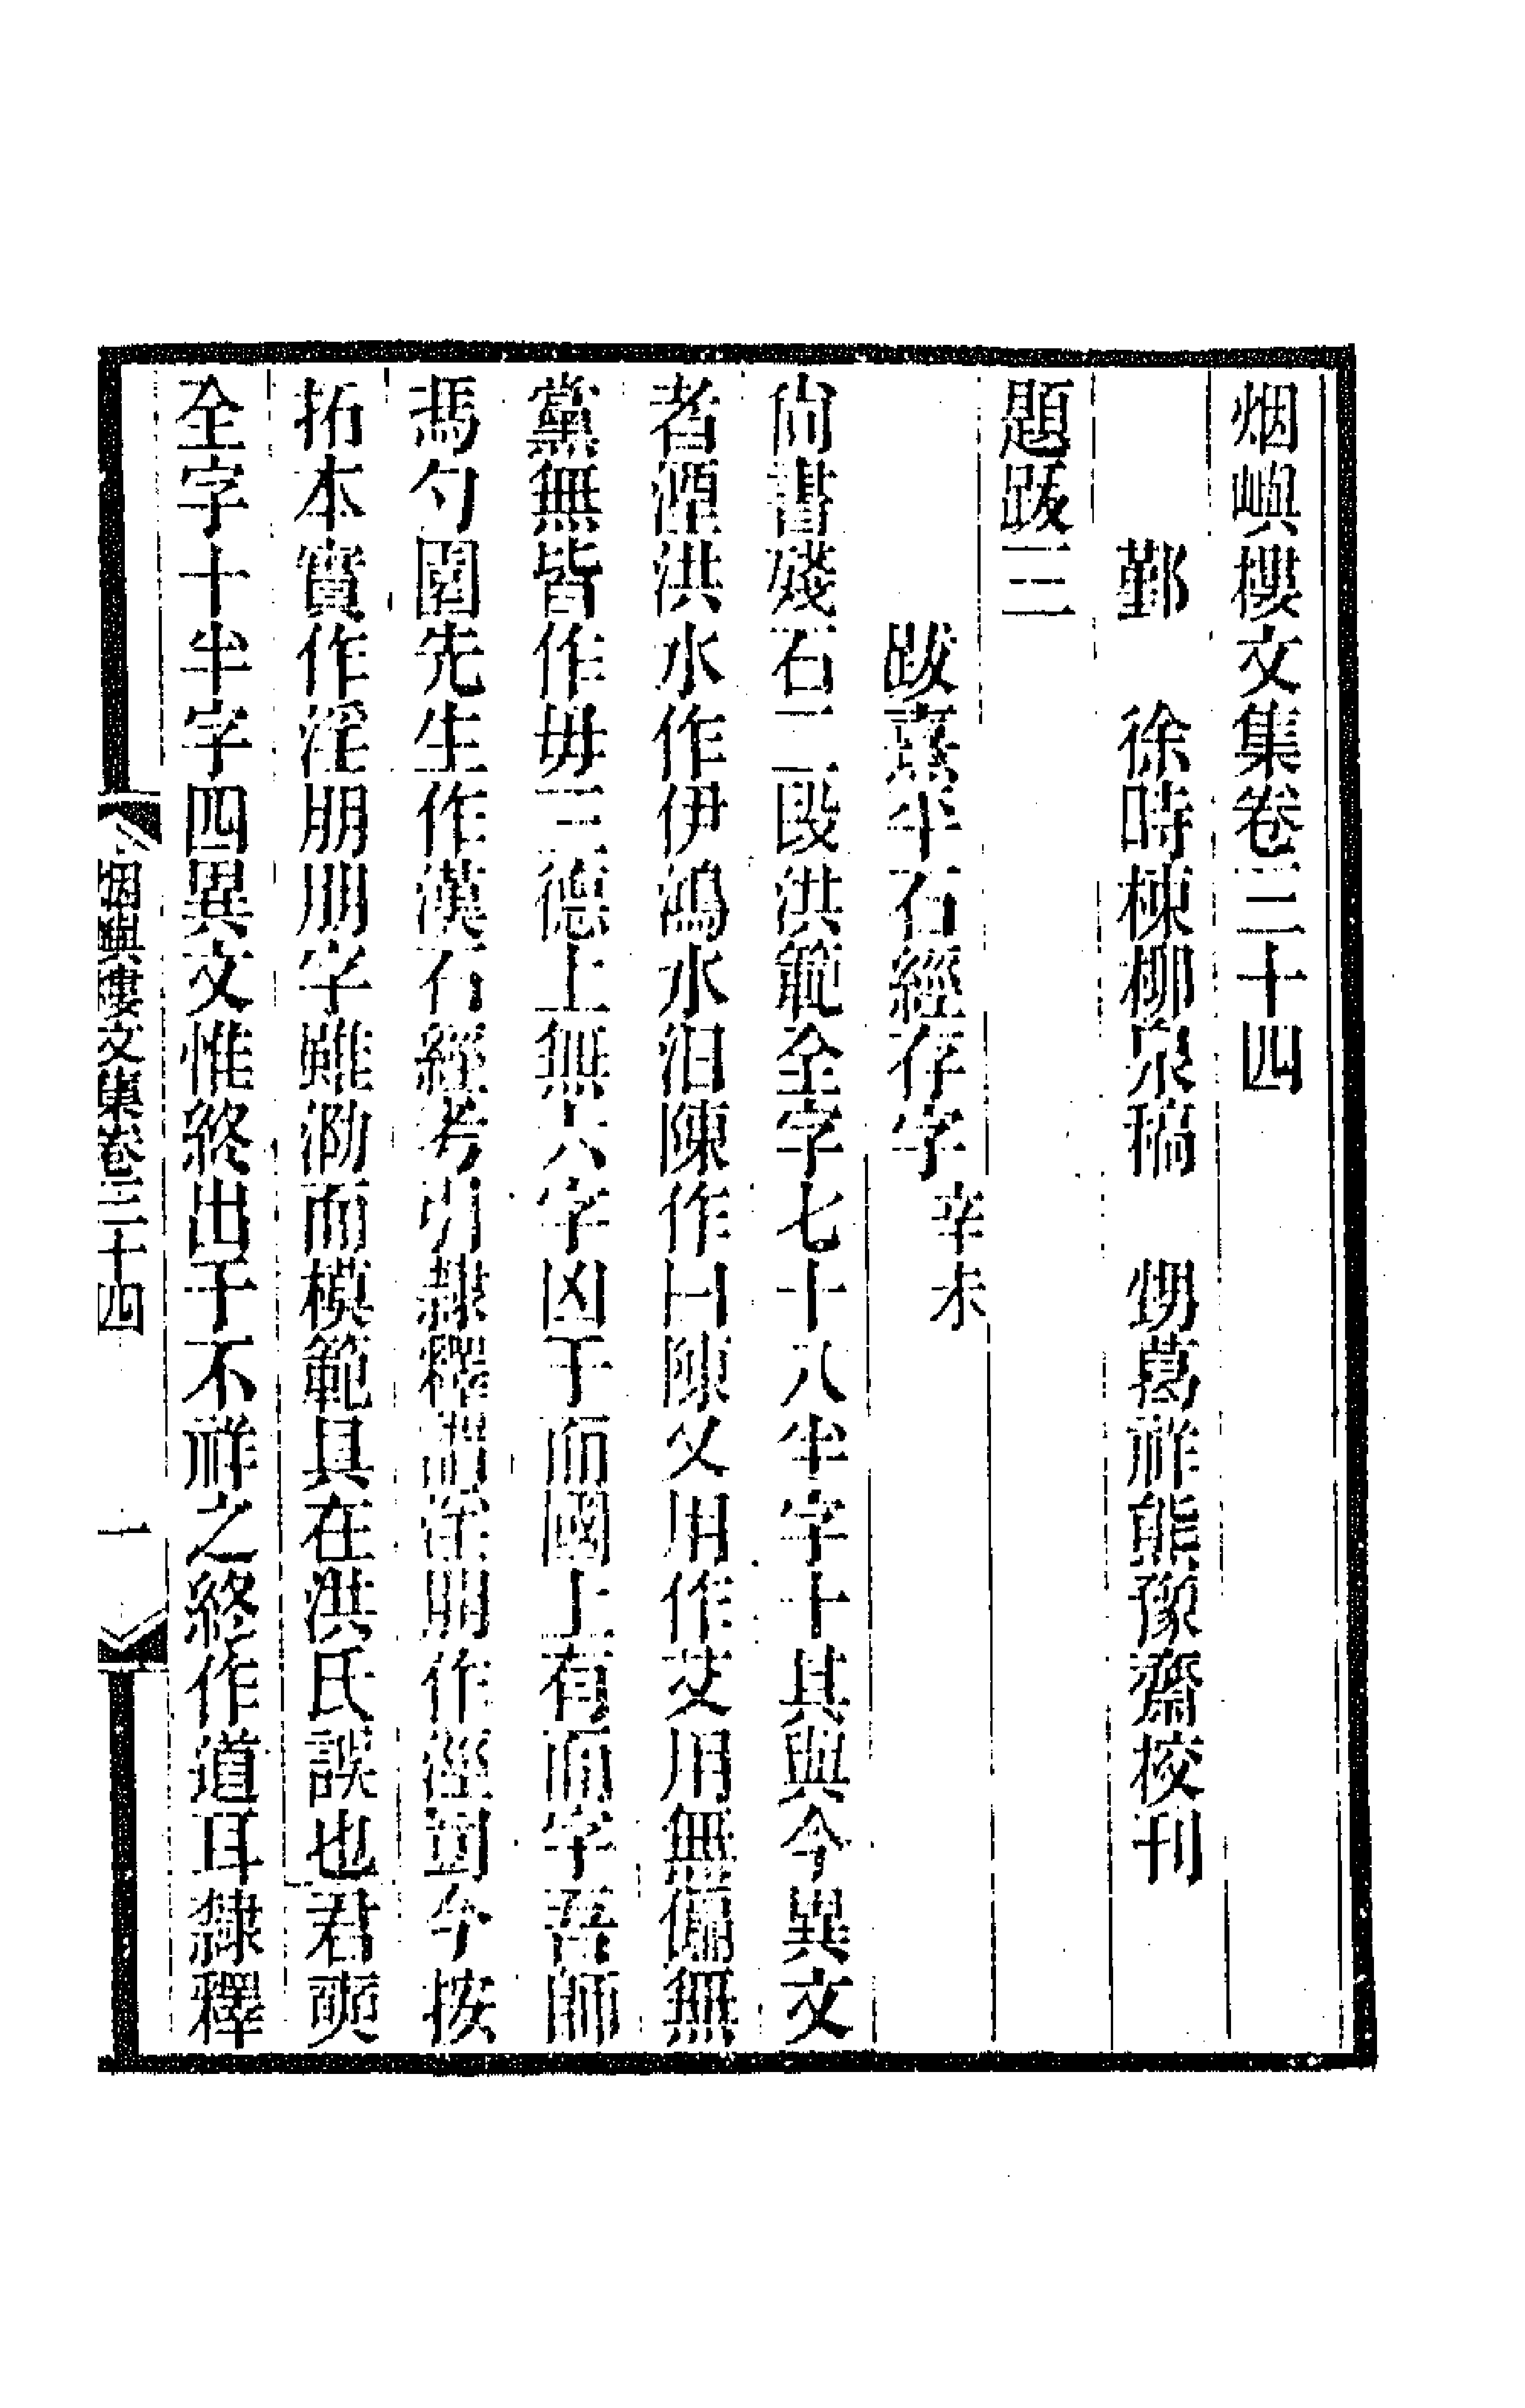 烟嶼樓文集卷三十四
鄞　徐時棟柳泉稿　甥葛祥熊豫齋校刊
題跋三
跋熹平石經存字辛未
尚書殘石二段洪範全字七十八半字十其與今異文
者湮洪水作伊鴻水汨陳作曰陳乂用作艾用無偏無
黨無皆作毋三德上無六字凶于而國上有而字吾師
馮勺園先生作漢石經考引隸釋謂淫朋作淫今按
拓本實作淫朋朋字雖泐而模範具在洪氏誤也君奭
全字十半字四異文惟終出于不祥之終作道耳隸釋
烟嶼樓文集卷三十四　一